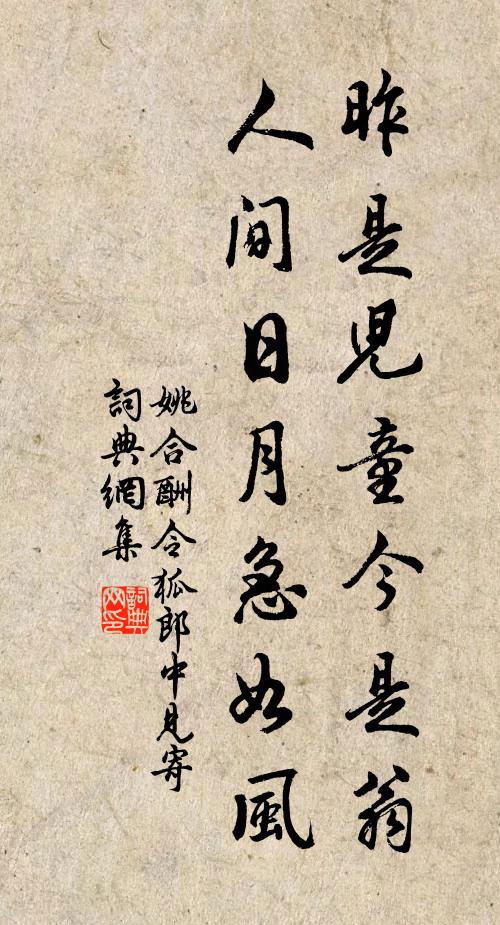 昨是兒童今是翁
人間日月急如風
姚合酬令狐郎中見寄
詞典網集
詞典
网印